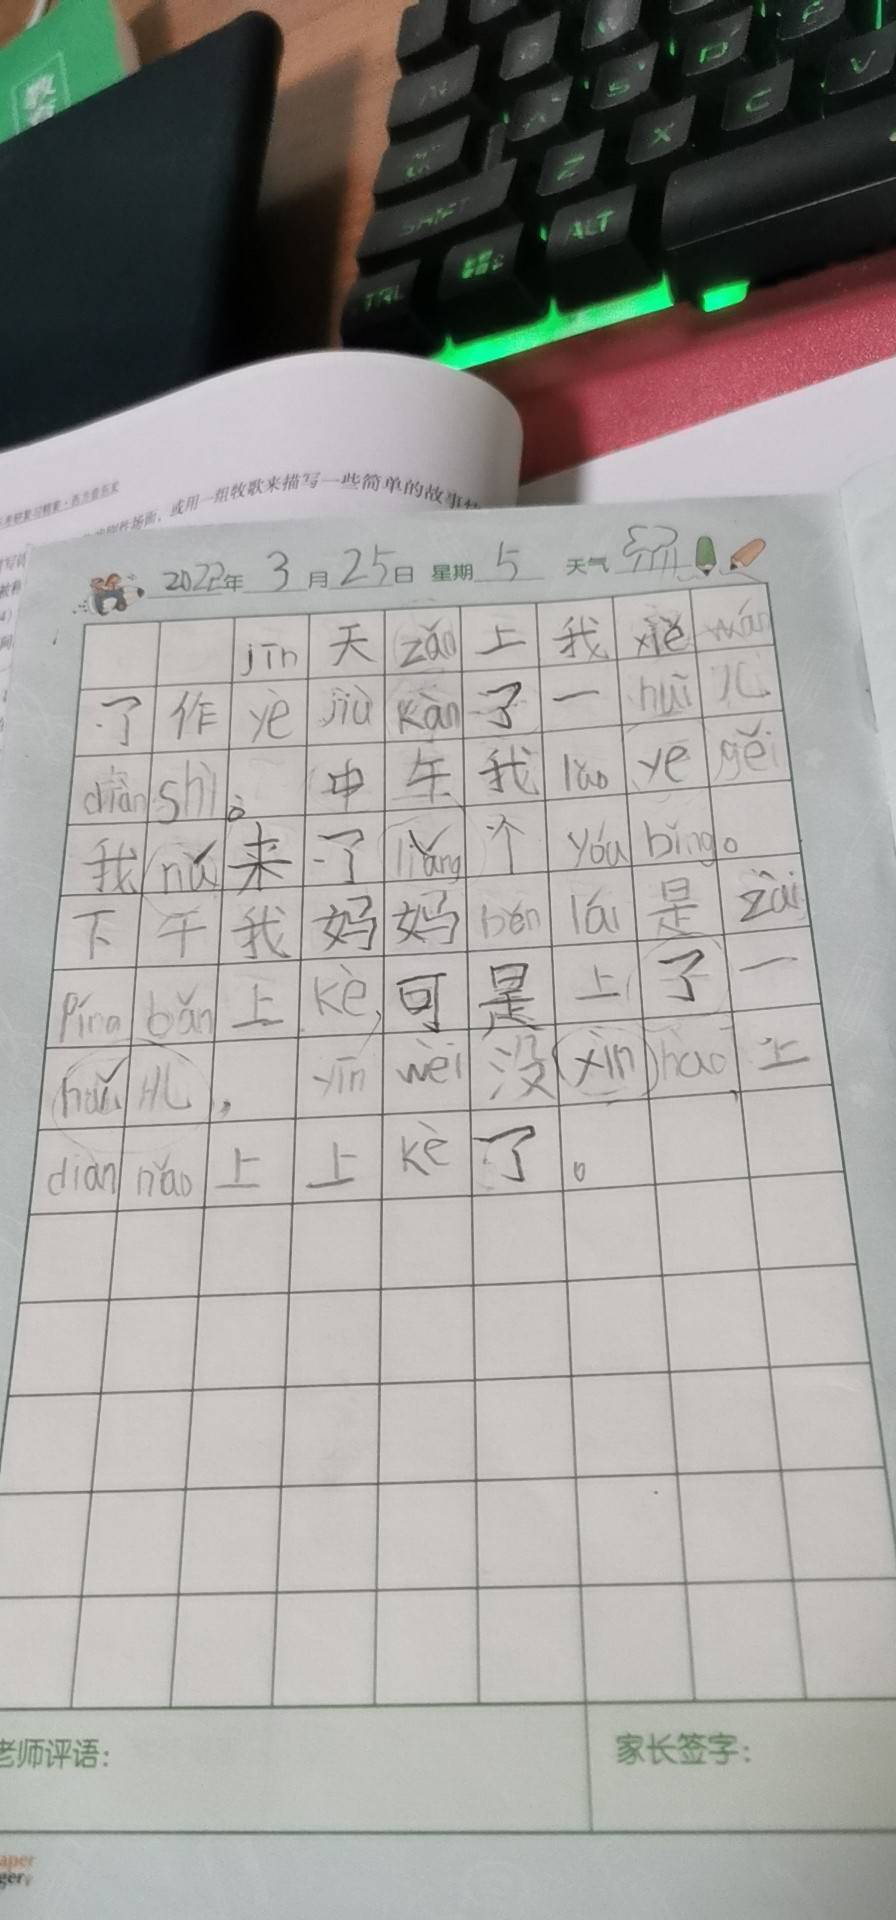 SHIFT Z X C V
CTRL ALT
或用一组牧歌来描写一些简单的故事
2022年 3 月 25 日 星期 5 天气
jīn 天 zǎo 上 我 xiě wán
了 作 yè jiù kàn 了 一 huǐ 儿
diàn shì。 中 午 我 lǎo ye gěi
我 ná 来 了 liǎng 个 yóu bǐng。
下 午 我 妈 妈 běn lái 是 zài
Píng bǎn 上 kè, 可 是 上 了 一
huǐ 儿, yīn wèi 没 xìn hao 上
diàn nǎo 上 上 kè 了 。
老师评语：
家长签字：